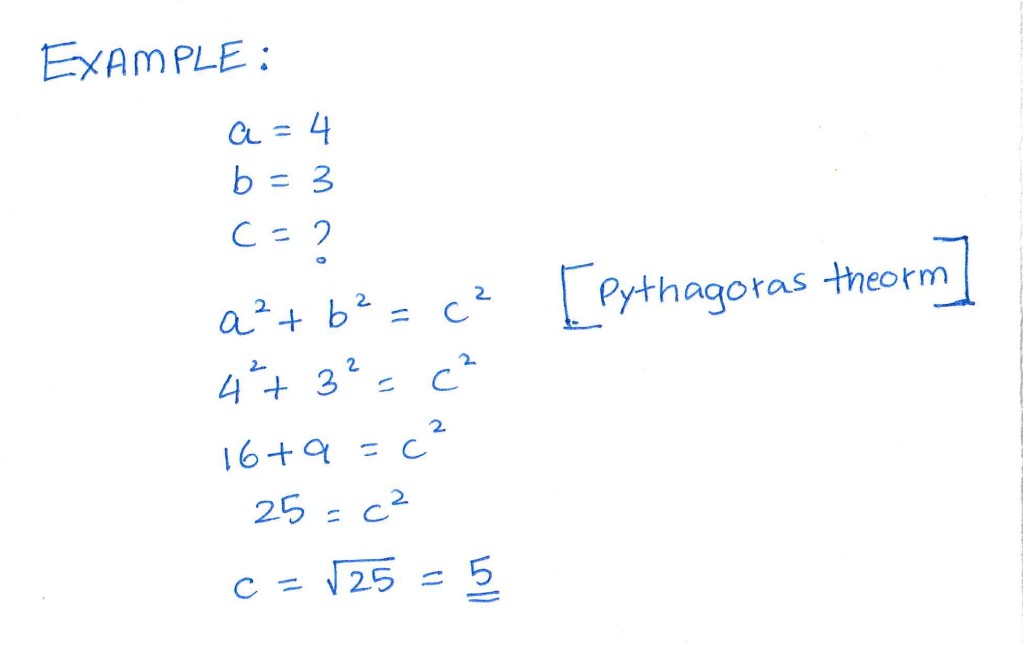 EXAMPLE:
a = 4
b = 3
c = ?
a² + b² = c² [Pythagoras theorm]
4² + 3² = c²
16+9 = c²
25 = c²
c = √25 = 5